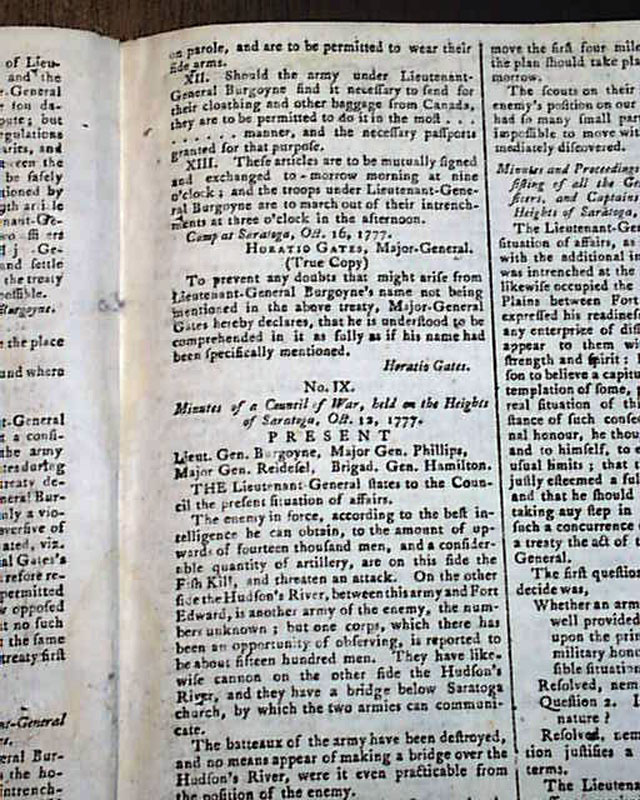 of Lieu-
and the
r-General
pute; but
egulations
aries, and
be safely
tioned by
Ge-
and settle
the treaty
possible.
Burgoyne.
the place
und where
nt-General
a consi-
the army
treaty de-
neral Bur-
nly a vio-
ated, viz.
ial Gates's
refore re-
permitted
w opposed
at no such
the same
treaty first
nt-General
eral Bur-
the ho-
intrench-
on parole, and are to be permitted to wear their
side arms.
XII. Should the army under Lieutenant-
General Burgoyne find it necessary to send for
their cloathing and other baggage from Canada,
they are to be permitted to do it in the most . . .
. . . . . . manner, and the necessary passports
granted for that purpose.
XIII. These articles are to be mutually signed
and exchanged to-morrow morning at nine
o'clock; and the troops under Lieutenant-Gene-
ral Burgoyne are to march out of their intrench-
ments at three o'clock in the afternoon.
Camp at Saratoga, Oct. 16, 1777.
HORATIO GATES, Major-General.
(True Copy)
To prevent any doubts that might arise from
Lieutenant-General Burgoyne's name not being
mentioned in the above treaty, Major-General
Gates hereby declares, that he is understood to be
comprehended in it as fully as if his name had
been specifically mentioned.
Horatio Gates.
No. IX.
Minutes of a Council of War, held on the Heights
of Saratoga, Oct. 12, 1777.
PRESENT
Lieut. Gen. Burgoyne, Major Gen. Phillips,
Major Gen. Reidesel, Brigad. Gen. Hamilton.
THE Lieutenant-General states to the Coun-
cil the present situation of affairs.
The enemy in force, according to the best in-
telligence he can obtain, to the amount of up-
wards of fourteen thousand men, and a consider-
able quantity of artillery, are on this side the
Fish Kill, and threaten an attack. On the other
side the Hudson's River, between this army and Fort
Edward, is another army of the enemy, the num-
bers unknown; but one corps, which there has
been an opportunity of observing, is reported to
be about fifteen hundred men. They have like-
wise cannon on the other side the Hudson's
River, and they have a bridge below Saratoga
church, by which the two armies can communi-
cate.
The batteaux of the army have been destroyed,
and no means appear of making a bridge over the
Hudson's River, were it even practicable from
the position of the enemy.
move the first four mile
the plan should take pla
morrow.
The scouts on their
enemy's position on our
had so many small part
impossible to move wi
mediately discovered.
Minutes and Proceedings
sisting of all the Ge
ficers, and Captains
Heights of Saratoga,
The Lieutenant-Ge
situation of affairs, as
with the additional in
was intrenched at the
likewise occupied the
Plains between Fort
expressed his readiness
any enterprize of diff
appear to them wi
strength and spirit:
son to believe a capitu
templation of some,
real situation of th
stance of such consec
nal honour, he thou
and to himself, to e
usual limits; that
justly esteemed a ful
and that he should
taking any step in
such a concurrence
a treaty the act of t
General.
The first question
decide was,
Whether an arm
well provided
upon the prin
military hono
sible situation
Resolved, nem
Question 2. I
nature?
Resolved, nem
tion justifies a
terms.
The Lieuten